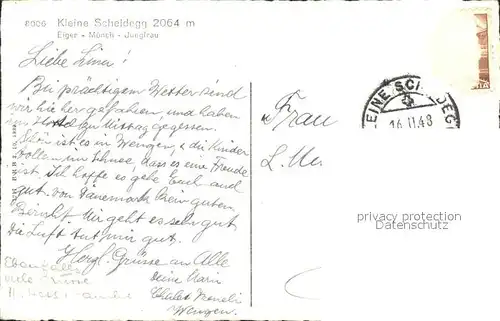 8026 Kleine Scheidegg 2064 m
Eiger - Mönch - Jungfrau
Liebe Lina!
Bei prächtigem Wetter sind
wir hieher gefahren, und haben
im Hotel zu Mittag gegessen.
Schön ist es in Wengen, & die Kinder
tollen im Schnee, dass es eine Freude
ist. Ich hoffe es gehe Euch auch
gut. von Dänemark guten
Bericht. Mir geht es sehr gut
die Luft tut mir gut.
Herzl. Grüsse an Alle
Deine
Chalet
Wengen
Ebenfalls
viele
Frau
L. Me
KLEINE SCHEIDEGG
16.II.48
privacy protection
Datenschutz